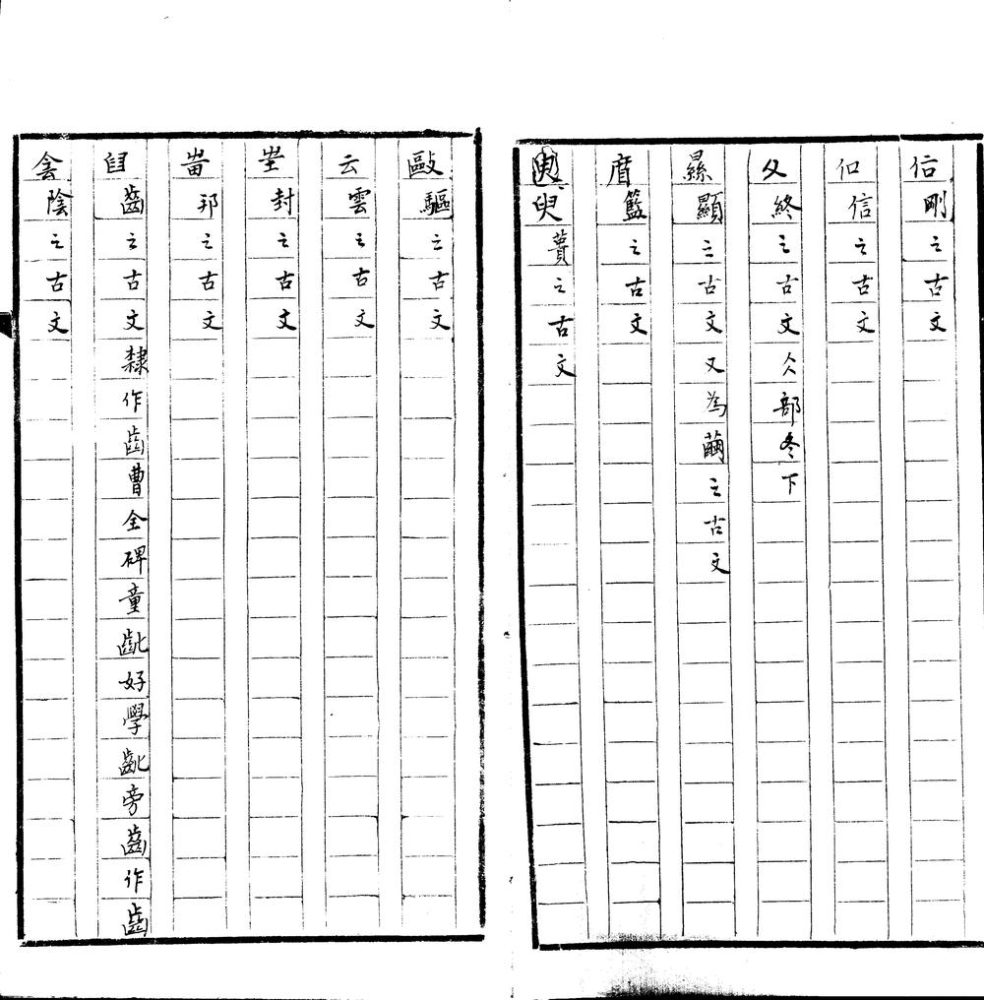 㐰剛之古文
㐰信之古文
夂終之古文仌部冬下
㬎顯之古文又為繭之古文
籃之古文
臾蕢之古文
敺驅之古文
云雲之古文
㞷封之古文
邦之古文
齒之古文隸作齒曹全碑童齔好學齔旁齒作齒
侌陰之古文